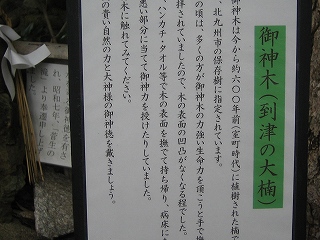 御神木(到津の大楠)
御神木は今から約六〇〇年前(室町時代)に植樹された楠で
、北九州市の保存樹に指定されています。
の頃は、多くの方が御神木の力強い生命力を頂こうと手で撫
拝されていましたので、木の表面の凹凸がなくなる程でした。
ハンカチ、タオル等で木の表面を撫でて持ち帰り、病床に
悪い部分に当てて御神力を授けたりしていました。
木に触れてみてください。
の貴い自然の力と大神様の御神徳を戴きましょう。